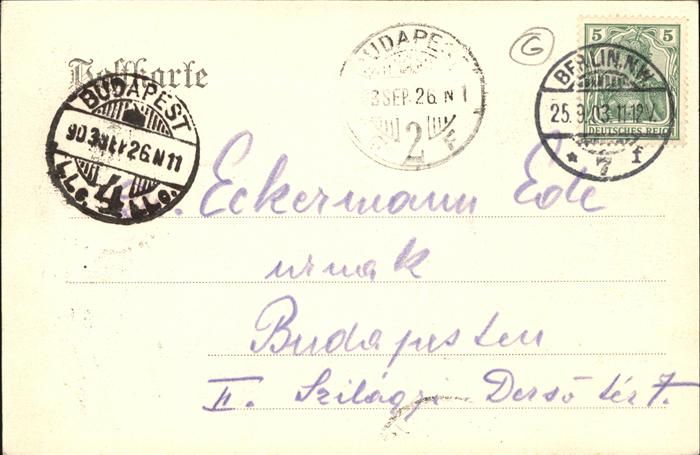 Postkarte
BUDAPEST
903 SEP. 26. N 11
BUDAPEST
3 SEP. 26. N 1
2
G
5 5
DEUTSCHES REICH
BERLIN. N.W.
25.9.03.11-12V.
* 7 f
Eckermann Ede
urnak
Budapesten
II. Szilágyi Dersö tér 7.